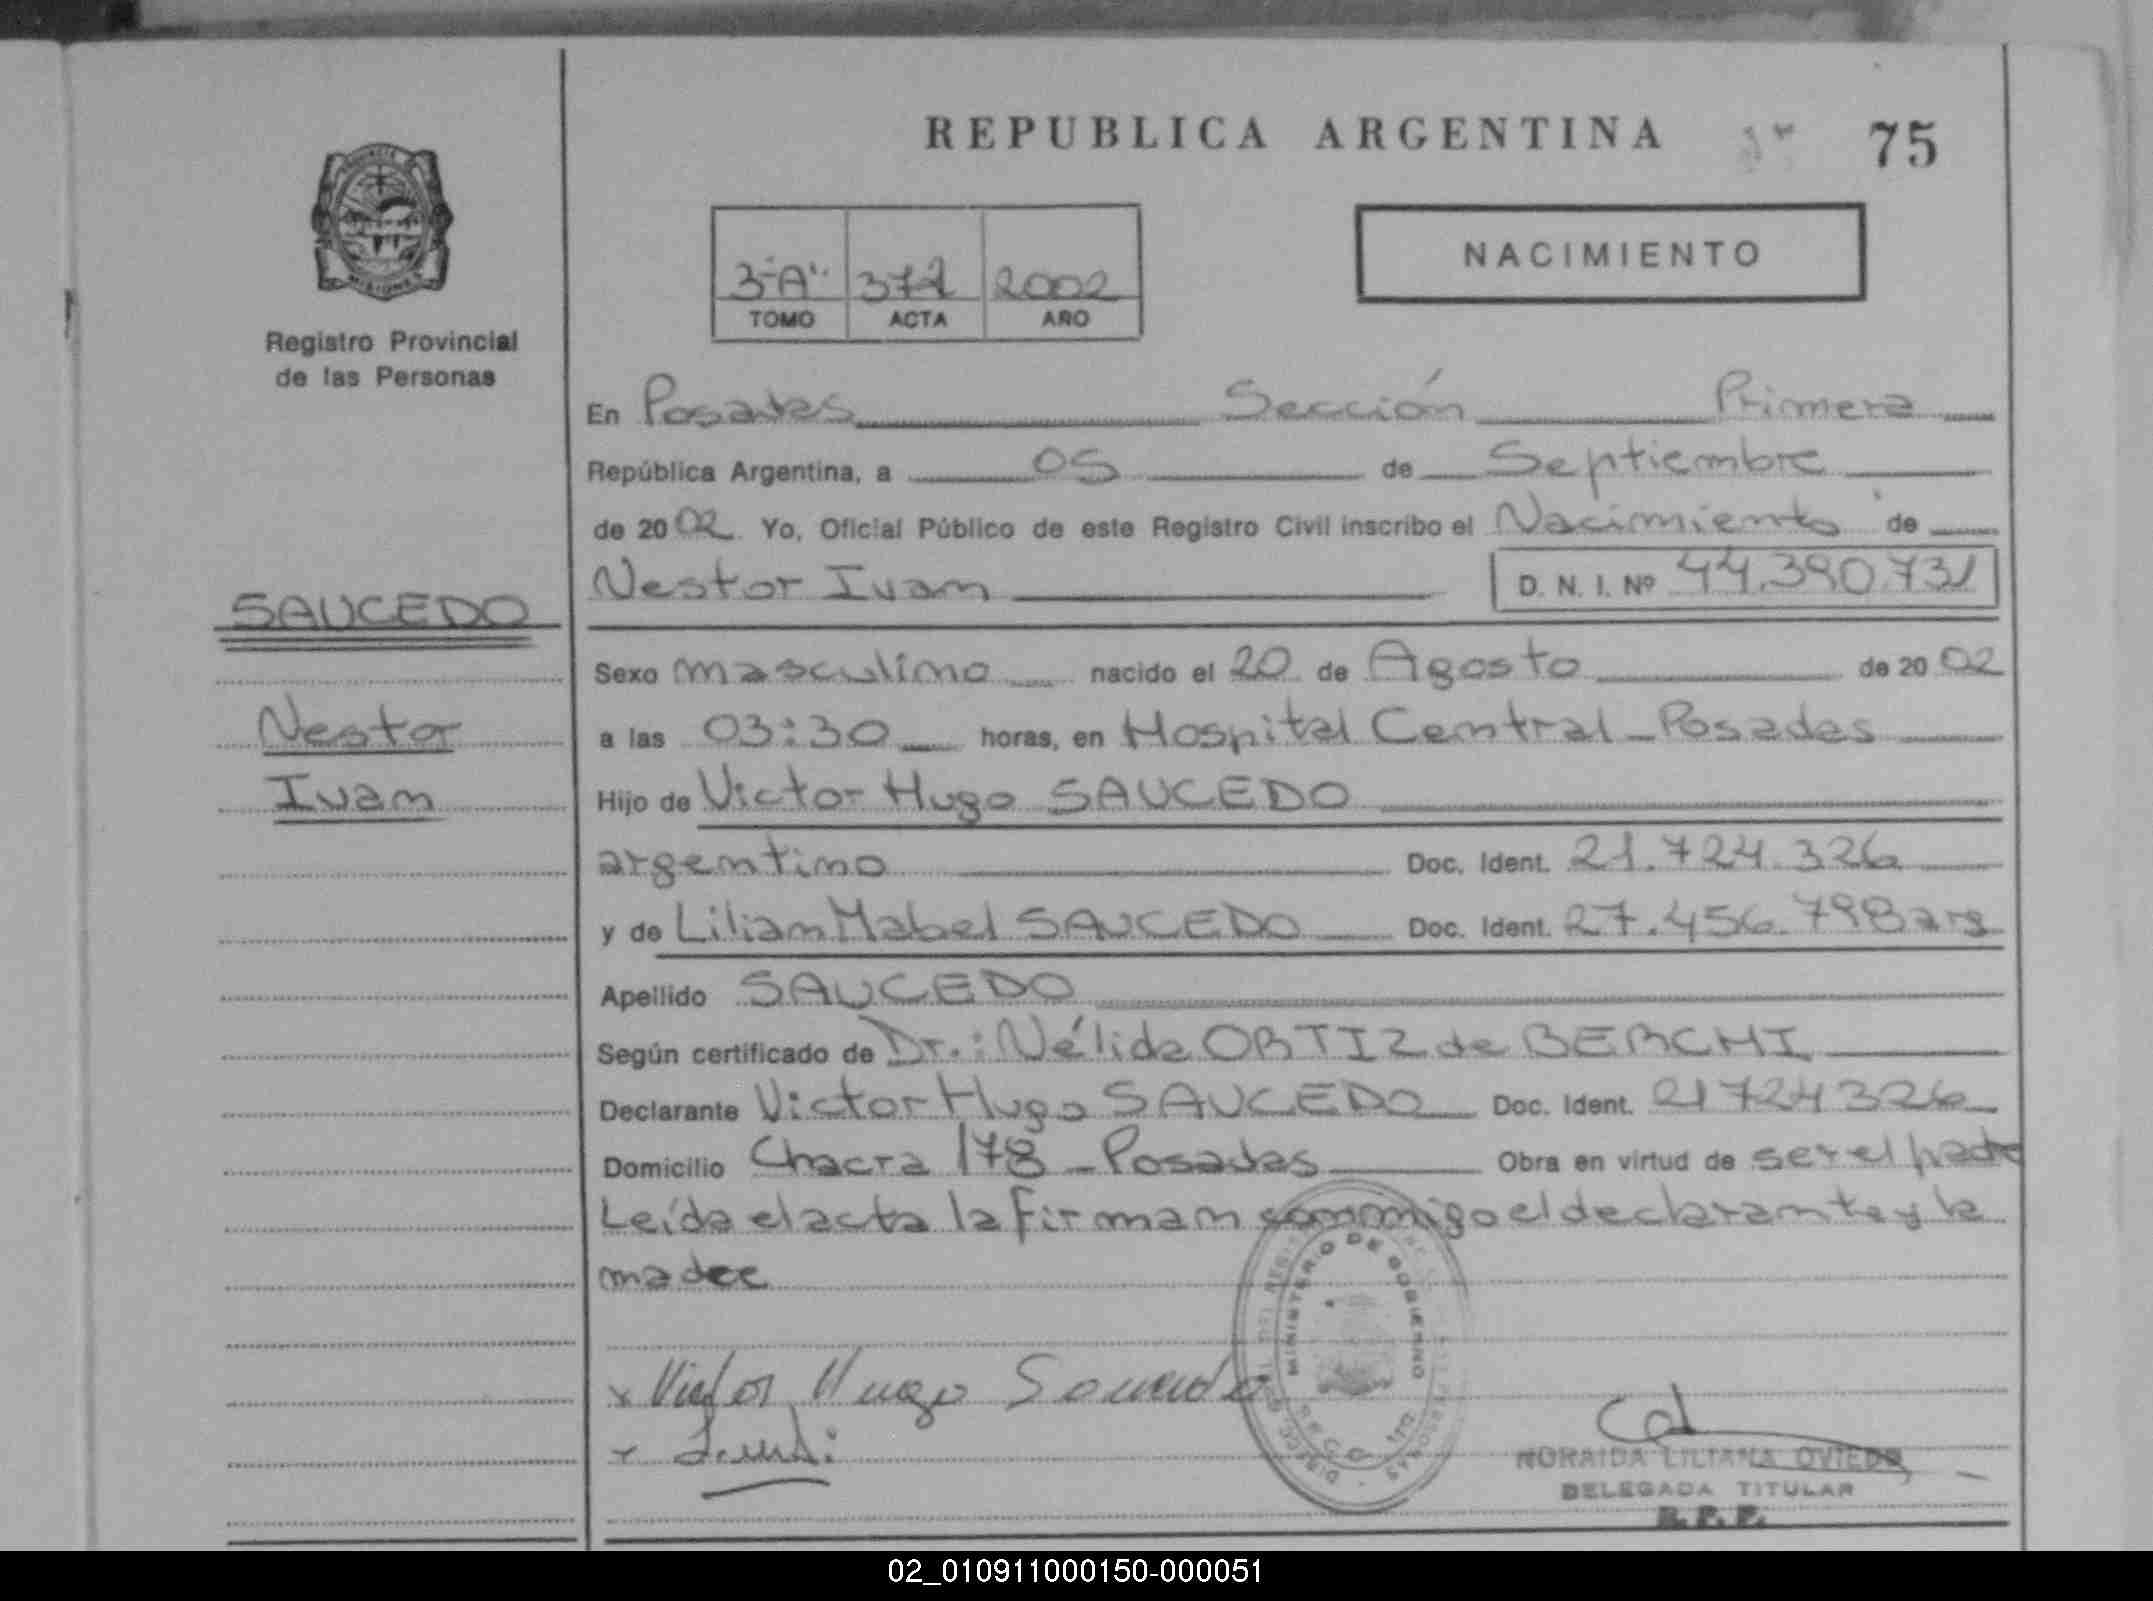 REPUBLICA ARGENTINA 75
NACIMIENTO
3-"A" 377 2002
TOMO ACTA AÑO
Registro Provincial
de las Personas
En Posadas Sección Primera
República Argentina, a 05 de Septiembre
de 2002 Yo, Oficial Público de este Registro Civil inscribo el Nacimiento de
Nestor Ivan D. N. I. Nº 44.390.731
SAUCEDO
Nestor
Ivan
Sexo masculino nacido el 20 de Agosto de 2002
a las 03:30 horas, en Hospital Central - Posadas
Hijo de Victor Hugo SAUCEDO
argentino Doc. Ident. 21.724.326
y de Lilian Mabel SAUCEDO Doc. Ident. 27.456.798 arg
Apellido SAUCEDO
Según certificado de Dr.: Nélida ORTIZ de BERCHI
Declarante Victor Hugo SAUCEDO Doc. Ident. 21724326
Domicilio Chacra 178 - Posadas Obra en virtud de ser el padre
Leída el acta la firman conmigo el declarante y la
madre
MINISTERIO DE GOBIERNO
x Victor Hugo Saucedo
x
NORAIDA LILIANA OVIEDO
DELEGADA TITULAR
R. P. P.
02_010911000150-000051